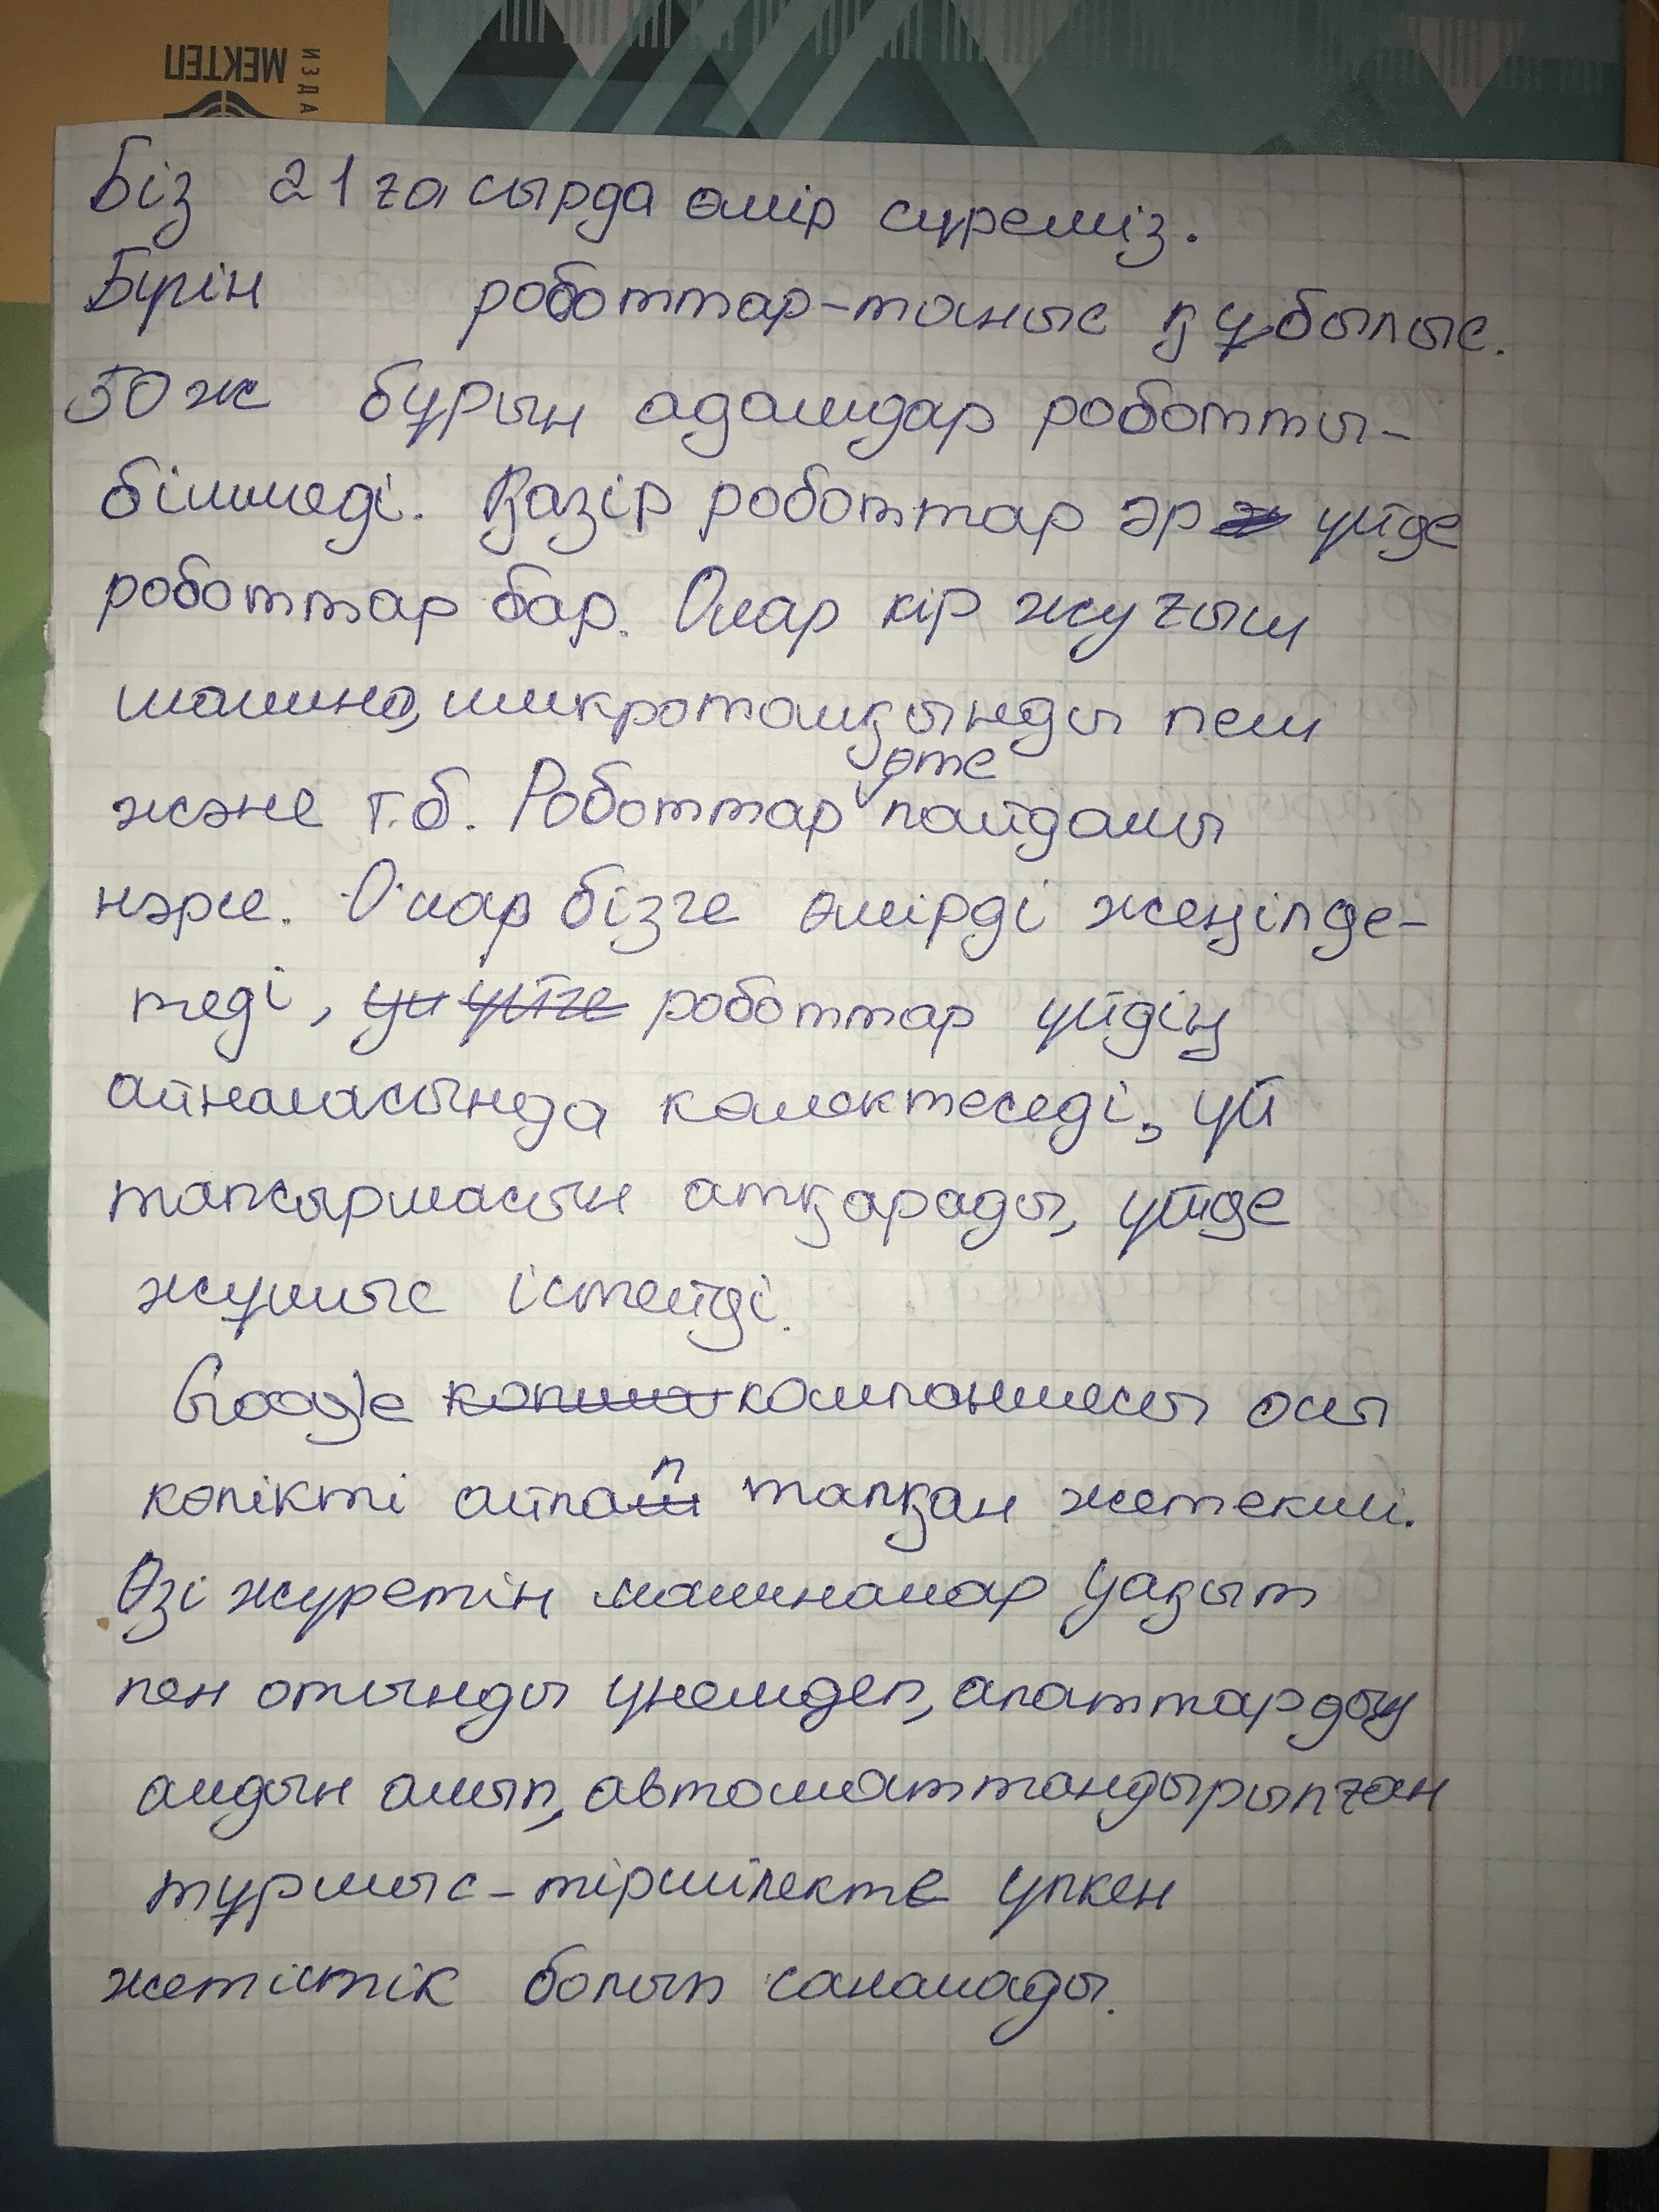 МЕКТЕП
ИЗДА
Біз 21 ғасырда өмір сүреміз.
Бүгін роботтар-таныс құбылыс.
50ж бұрын адамдар роботты-
білмеді. Қазір роботтар әр үйде
роботтар бар. Олар кір жуғыш
машина, микротолқынды пеш
және т.б. Роботтар өте пайдалы
нәрсе. Олар бізге өмірді жеңілде-
теді, үи үйге роботтар үйдің
айналасында көмектеседі, үй
тапсырмасын атқарады, үйде
жұмыс істейді.
Google компаниясы осы
көлікті ойлап тапқан жетекші.
Өзі жүретін машиналар уақыт
пен отынды үнемдеп, апаттардың
алдын алып, автоматтандырылған
тұрмыс-тіршілекте үлкен
жетістік болып саналады.